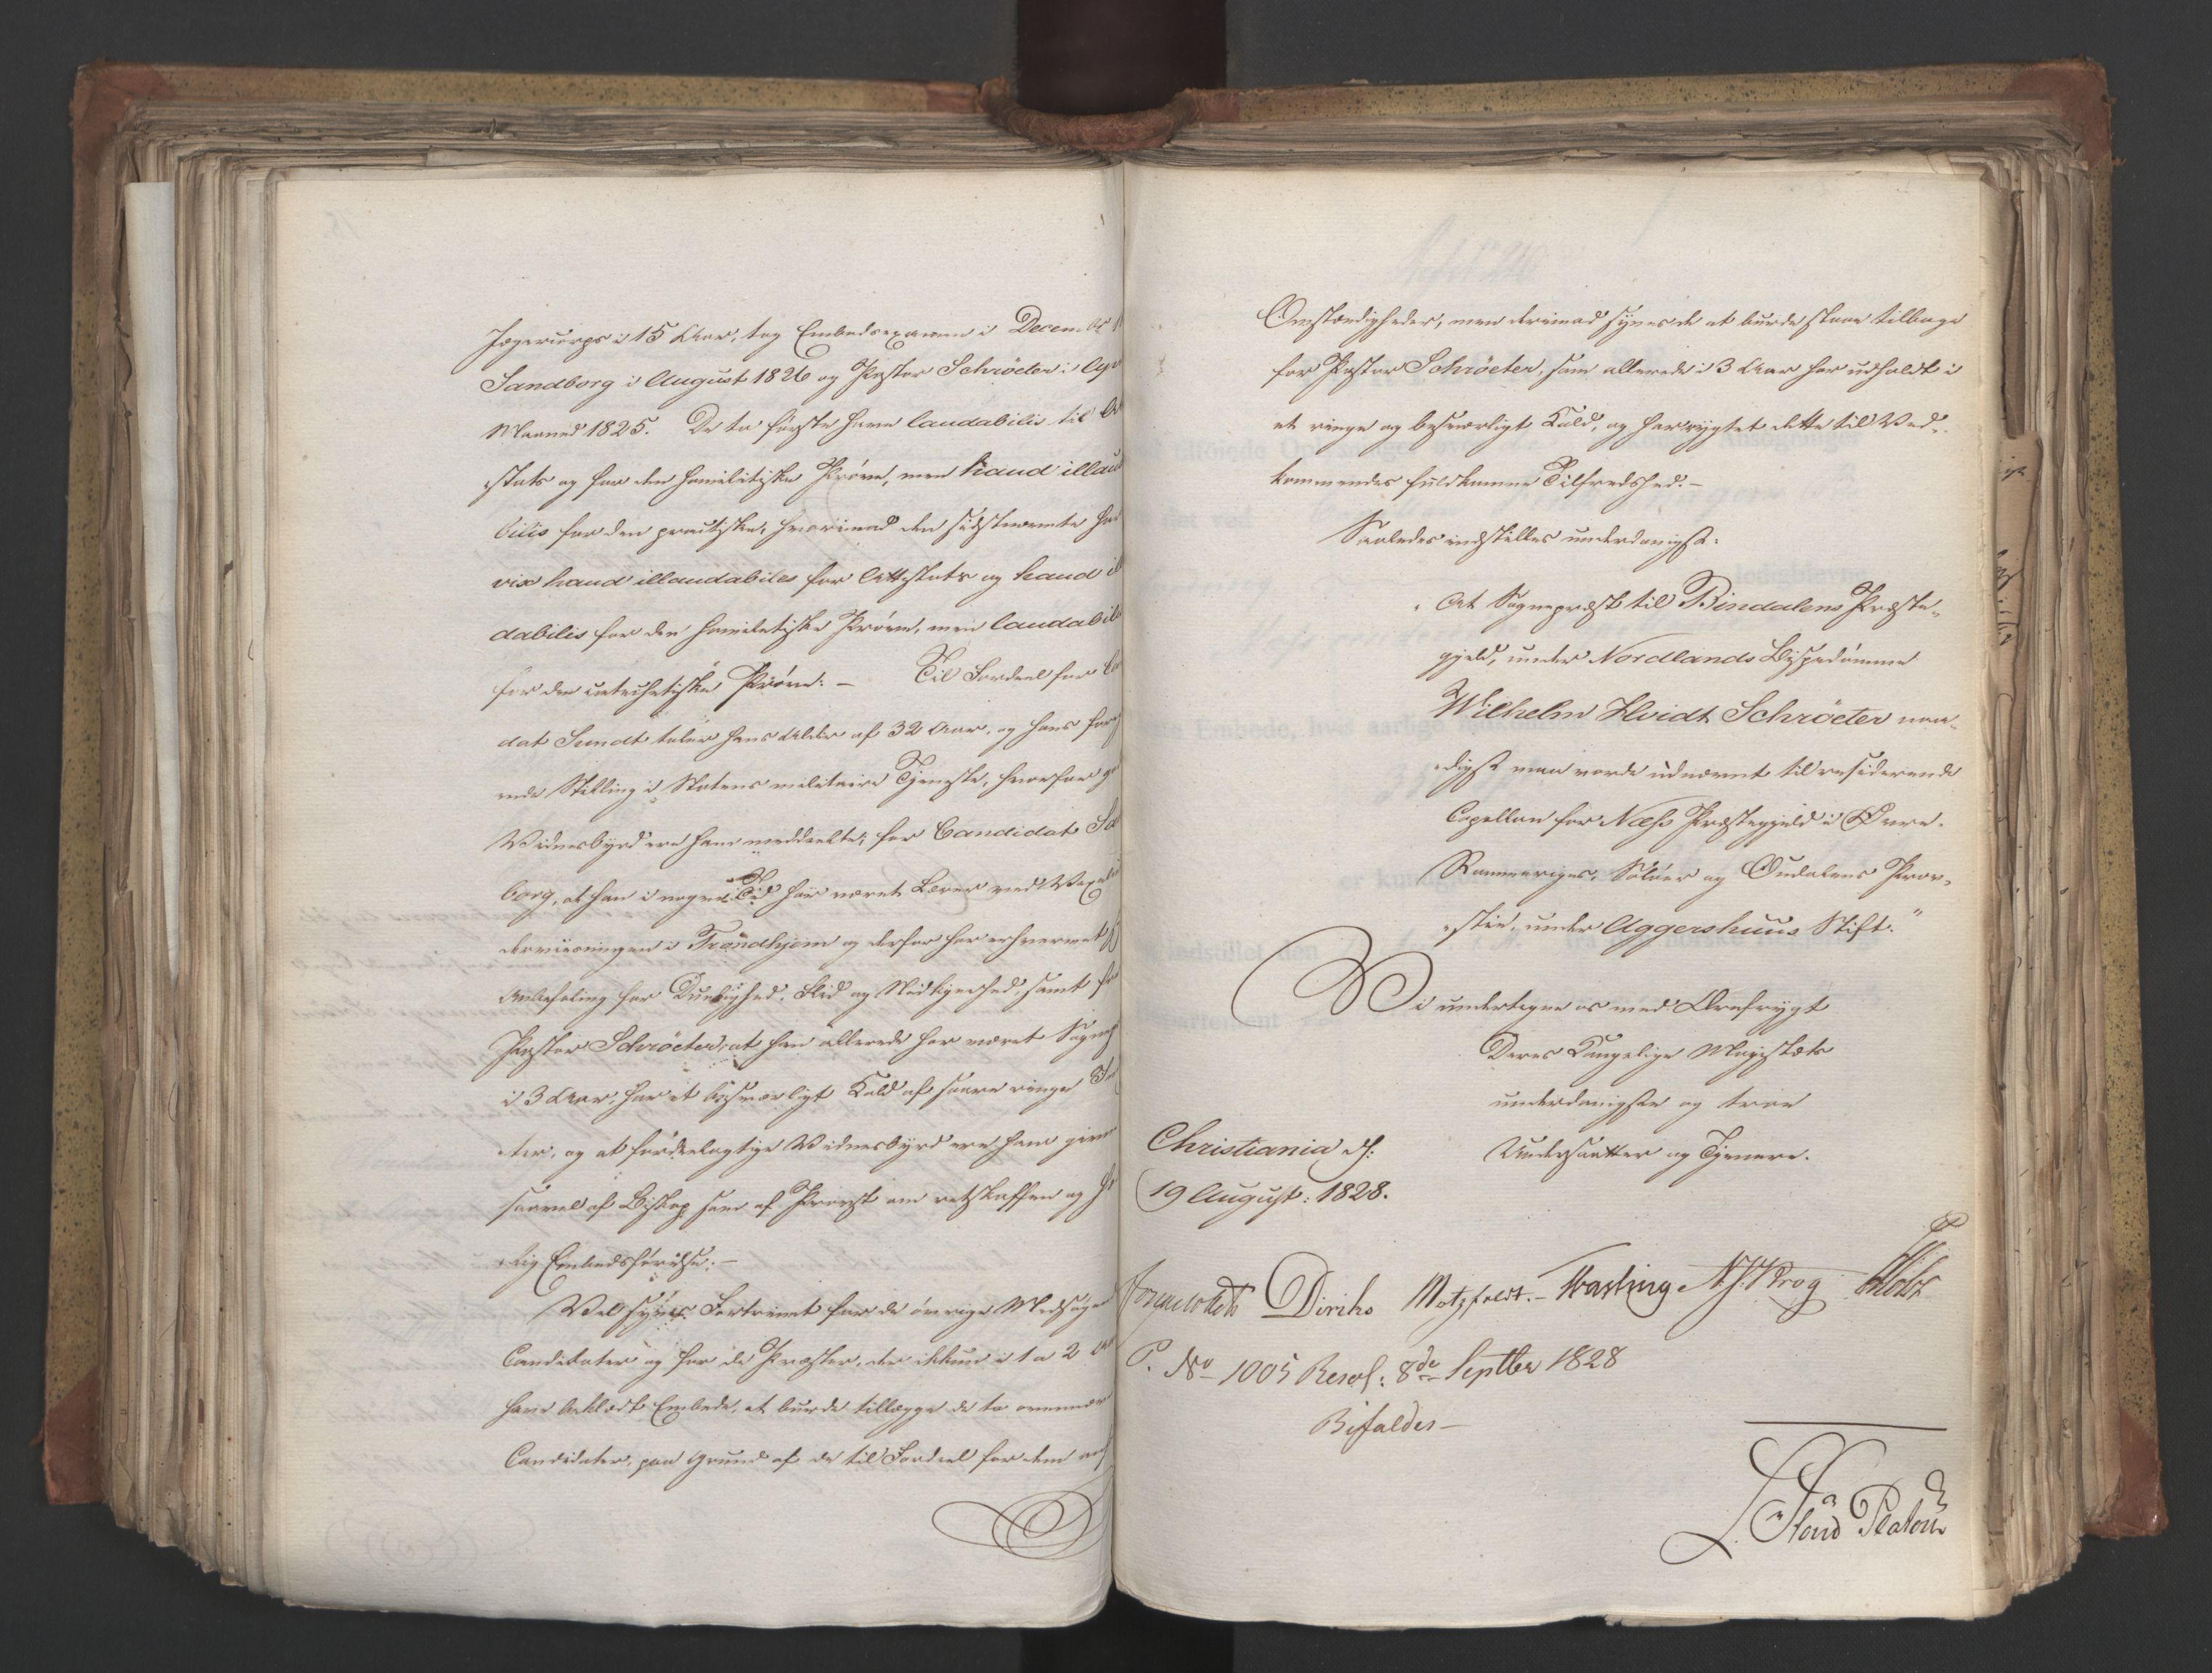 Jægercorps i 15 Aar, tog Embedsexamen i Decemb
Sandborg i August 1826 og Pastor Schröeter i
Maaned 1825. De to første have laudabilis til
stats og for den homiletiske Prøve, men haud illau
bilis for den practiske, hvorimod den sidstnævnte
vis haud illaudabiles for Attestats og haud
dabilis for den homiletiske Prøve, men laudabil
for den catechetiske Prøve. — Til Fordeel for
dat Sundt taler hans Alder af 32 Aar, og hans
ende Stilling i Statens militaire Tjeneste, hvorfor
Vidnesbyrd ere ham meddeelte; for Candidat
borg, at han i nogen Tid har været Lærer ved
derviisningen i Trondhjem og derfor har erhvervet
Anbefaling for Duelighed, Flid og Nidkjerhed, samt
Pastor Schröeter, at han allerede har været
i 3 Aar, har et besværligt Kald af saare ringe
ter, og at fordeelagtige Vidnesbyrd ere ham
saavel af Biskop som af Provst om retskaffen og
lig Embedsførelse. —
Vel synes Fortrinet for de øvrige
Candidater og for de Præster, der ikkun i 1 a 2
have beklædt Embede, at burde tillægges de to
Candidater, paa Grund af de til Fordeel for dem
Omstændigheder, men derimod synes de at burde staae tilbage
for Pastor Schröeter, som allerede i 3 Aar har udholdt i
et ringe og besværligt Kald, og har røgtet dette til Ved-
kommendes fuldkomne Tilfredshed. —
Saaledes indstilles underdanigst:
"At Sognepræst til Bindalens Præste-
gjeld, under Nordlands Bispedømme
Wilhelm Hvidt Schröeter naa-
digst maa vorde udnævnt til residerende
Capellan for Næss Præstegjeld i Øvre-
Rommeriges, Soløer og Oudalens Prov-
stie, under Aggershuus Stift."
Vi undertegne os med Ærefrygt
Deres Kongelige Majestæts
underdanigste og troe
Undersaatter og Tjenere.
Christiania d:
19 August: 1828.
Diriks Motzfeldt. — Krog Holst
P. No 1005 Resol: 8de Septbr 1828
Bifaldes —